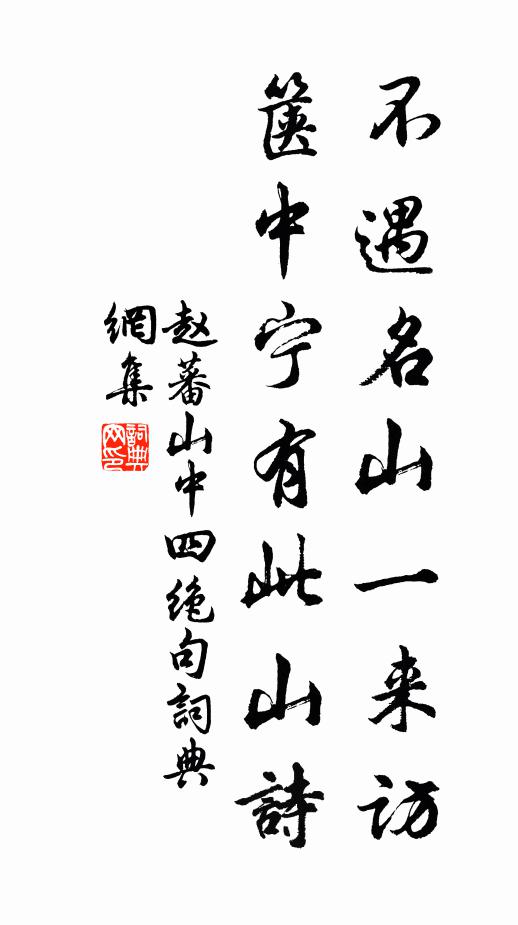 不遇名山一来访
箧中宁有此山詩
赵蕃山中四绝句詞典
網集
詞典网印